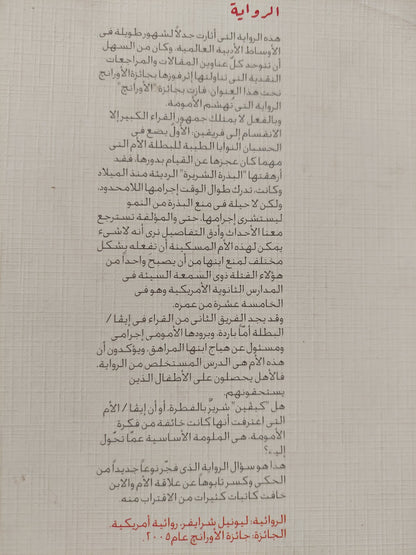 الرواية
هذه الرواية التى أثارت جدلاً لشهور طويلة فى
الأوساط الأدبية العالمية. وكان من السهل
أن تتوحد كلّ عناوين المقالات والمراجعات
النقدية التى تناولتها إثر فوزها بجائزة الأورانج
تحت هذا العنوان. فازت بجائزة: "الأورانج"
الرواية التى تُهشم الأمومة.
وبالفعل لا يمتلك جمهور القراء الكبير إلا
الانقسام إلى فريقين: الأولُ يضع فى
الحسبان النوايا الطيبة للبطلة الأم التى
مهما كان عجزها عن القيام بدورها، فقد
أرهقتها "البذرة الشريرة" الرديئة منذ الميلاد
وكانت، تدرك طوال الوقت إجرامها اللامحدود،
ولكن لا حيلة فى منع البذرة من النمو
ليستشرى إجرامها، حتى والمؤلفة تسترجع
معنا الأحداث وأدق التفاصيل نرى أنه لا شىء
يمكن لهذه الأم المسكينة أن تفعله بشكل
مختلف لمنع ابنها من أن يصبح واحداً من
هؤلاء القتلة ذوى السمعة السيئة فى
المدارس الثانوية الأمريكية وهو فى
الخامسة عشرة من عمره.
وقد يجد الفريق الثانى من القراء فى إيڤا /
البطلة أمّاً باردة، وبرودها الأمومى إجرامى
ومسئول عن هياج ابنها المراهق، ويؤكدون أن
هذه الأم هى الدرس المستخلص من الرواية.
فالأهل يحصلون على الأطفال الذين
يستحقونهم.
هل "كيڤين" شريرٌ بالفطرة، أو أن إيڤا / الأم
التى اعترفت أنها كانت خائفة من فكرة
الأمومة، هى الملومة الأساسية عمّا تحّول
إليه؟
هذا هو سؤال الرواية الذى فجّر نوعاً جديداً من
الحكى وكسر تابوهاً عن علاقة الأم والابن
خافت كاتبات كثيرات من الاقتراب منه.
الروائية: ليونيل شرايفر، روائية أمريكية.
الجائزة: جائزة الأورانج عام ٢٠٠٥.